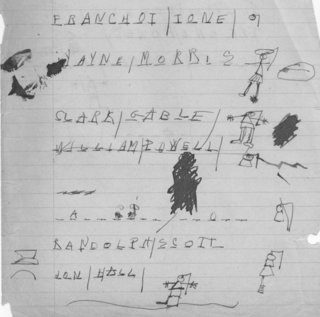 FRANCHOT/TONE/
WAYNE/MORRIS
CLARK/GABLE/
WILLIAM/POWELL/
RANDOLPH/SCOTT
JON/HALL/